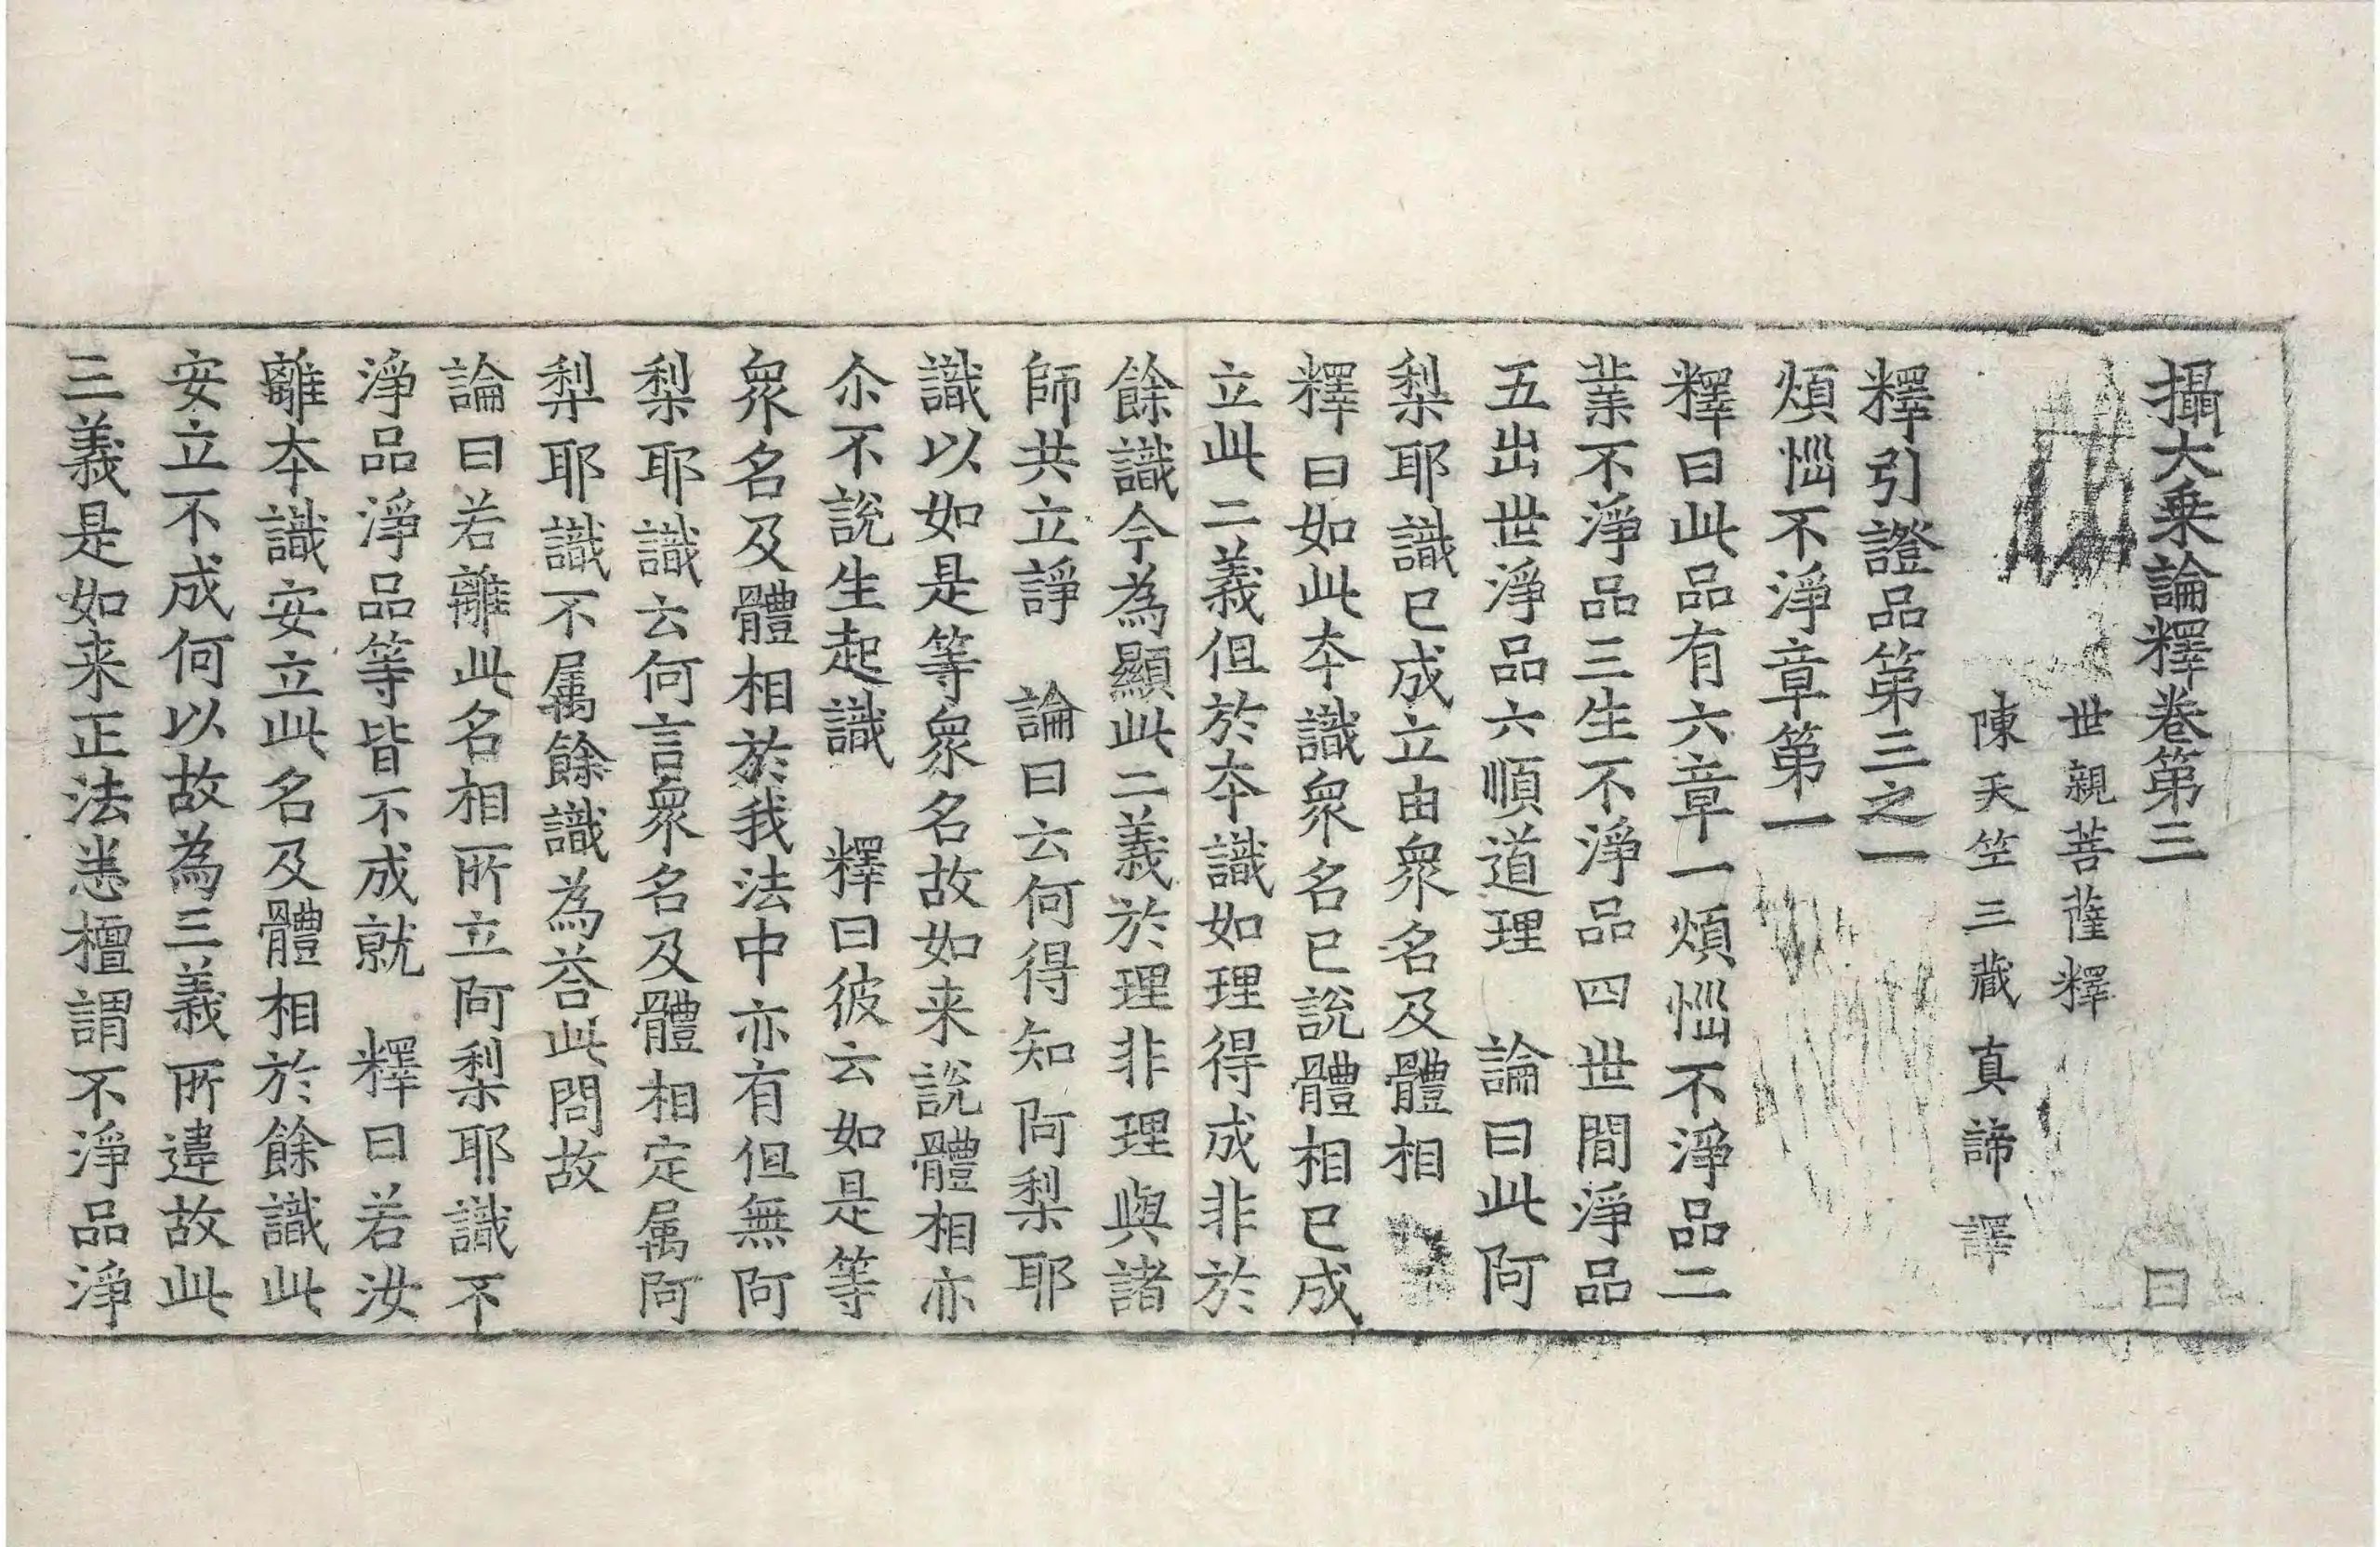 攝大乗論釋卷第三 曰
世親菩薩釋
陳天竺三藏真諦譯
釋引證品第三之一
煩惱不淨章第一
釋曰此品有六章一煩惱不淨品二
業不淨品三生不淨品四世間淨品
五出世淨品六順道理 論曰此阿
梨耶識已成立由衆名及體相
釋曰如此本識衆名已說體相已成
立此二義但於本識如理得成非於
餘識今為顯此二義於理非理與諸
師共立諍 論曰云何得知阿梨耶
識以如是等衆名故如来說體相亦
尒不說生起識 釋曰彼云如是等
衆名及體相於我法中亦有但無阿
梨耶識云何言衆名及體相定属阿
梨耶識不属餘識為荅此問故
論曰若離此名相所立阿梨耶識不
淨品淨品等皆不成就 釋曰若汝
離本識安立此名及體相於餘識此
安立不成何以故為三義所違故此
三義是如来正法悉檀謂不淨品淨